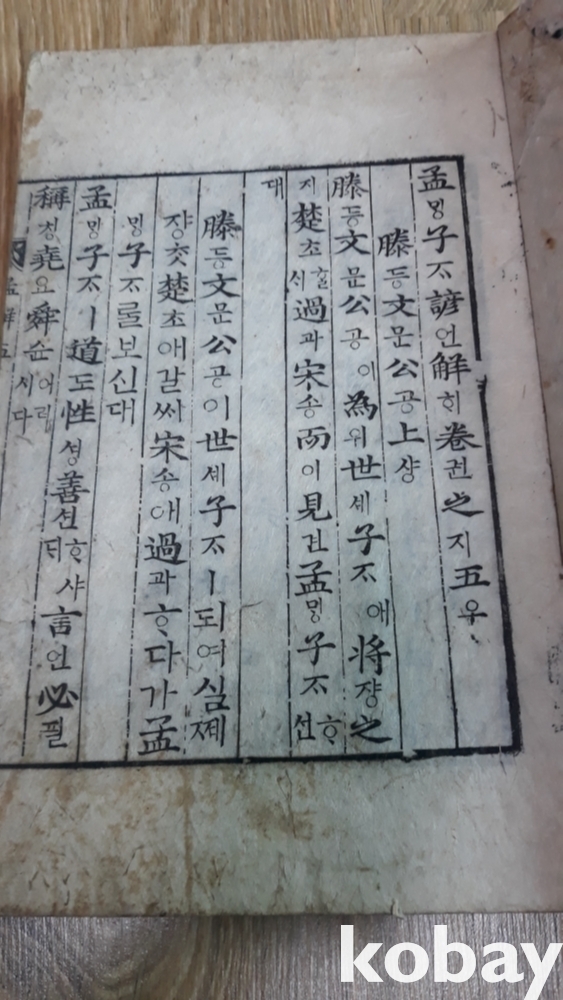 孟ᄆᆡᆼ子ᄌᆞ諺언解ᄒᆡ卷권之지五오
滕등文문公공上샹
滕등文문公공이為위世셰子ᄌᆞ애將쟝之
지楚초ᄒᆞᆯ시過과宋송而이見견孟ᄆᆡᆼ子ᄌᆞᄒᆞ선
대
滕등文문公공이世셰子ᄌᆞㅣ되여심ᄶᅦ
쟝ᄎᆞᆺ楚초애갈싸宋송애過과ᄒᆞ다가孟
ᄆᆡᆼ子ᄌᆞᄅᆞᆯ보신대
孟ᄆᆡᆼ子ᄌᆞㅣ道도性셩善션ᄒᆞ샤ᄃᆡ言언必필
稱칭堯요舜슌시다
孟解五
kobay